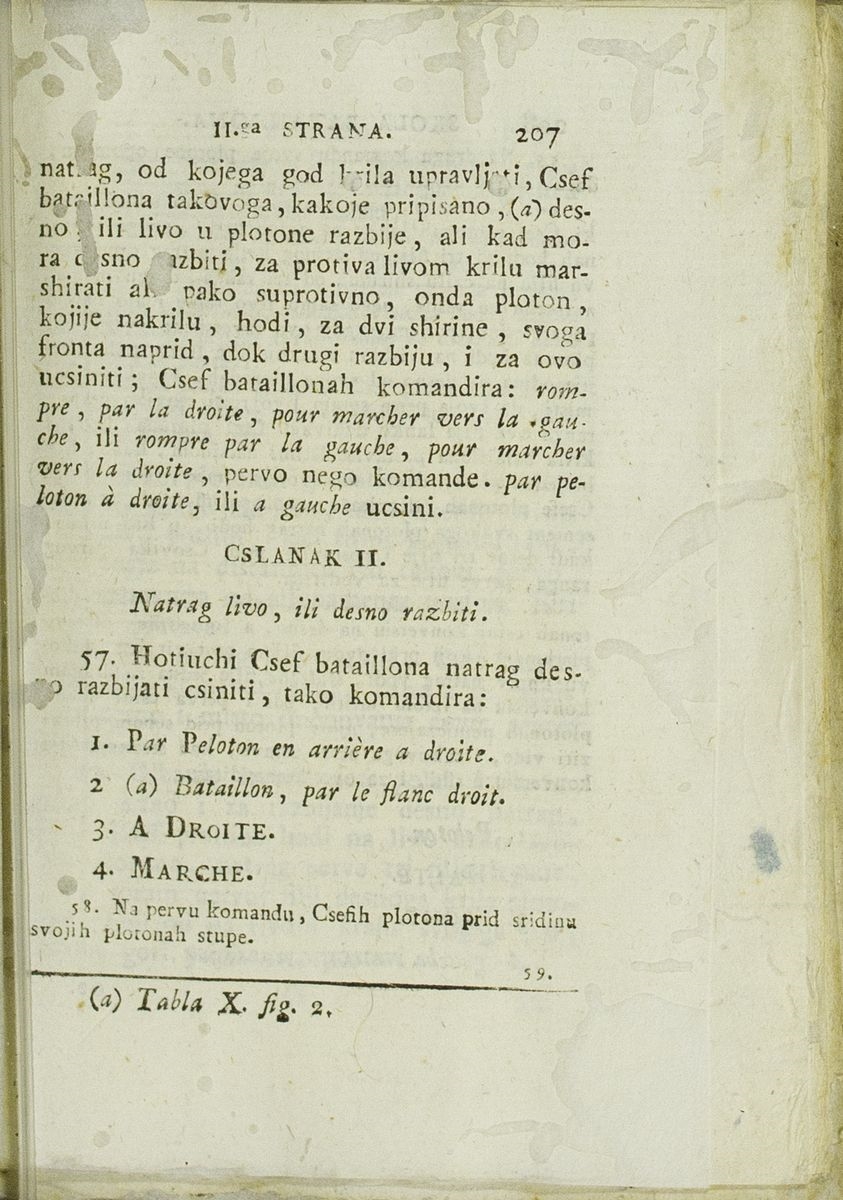 II.ga STRANA. 207
od kojega god upravljati, Csef
bataillona takovoga, kakoje pripisano, (a) des-
no, ili livo u plotone razbije, ali kad mo-
ra desno razbiti, za protiva livom krilu mar-
shirati pako suprotivno, onda ploton,
kojije nakrilu, hodi, za dvi shirine, svoga
fronta naprid, dok drugi razbiju, i za ovo
ucsiniti; Csef bataillonah komandira: rom-
pre, par la droite, pour marcher vers la gau-
che, ili rompre par la gauche, pour marcher
vers la droite, pervo nego komande. par pe-
loton à droite, ili a gauche ucsini.
CSLANAK II.
Natrag livo, ili desno razbiti.
57. Hotiuchi Csef bataillona natrag des-
no razbijati csiniti, tako komandira:
1. Par Peloton en arrière a droite.
2 (a) Bataillon, par le flanc droit.
3. A DROITE.
4. MARCHE.
58. Na pervu komandu, Csefih plotona prid sridinu
svojih plotonah stupe.
59.
(a) Tabla X. fig. 2.